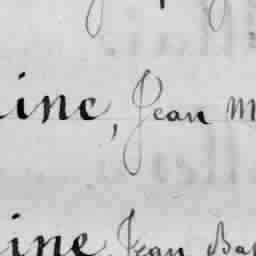 ine, Jean M
ine, Jean Bap